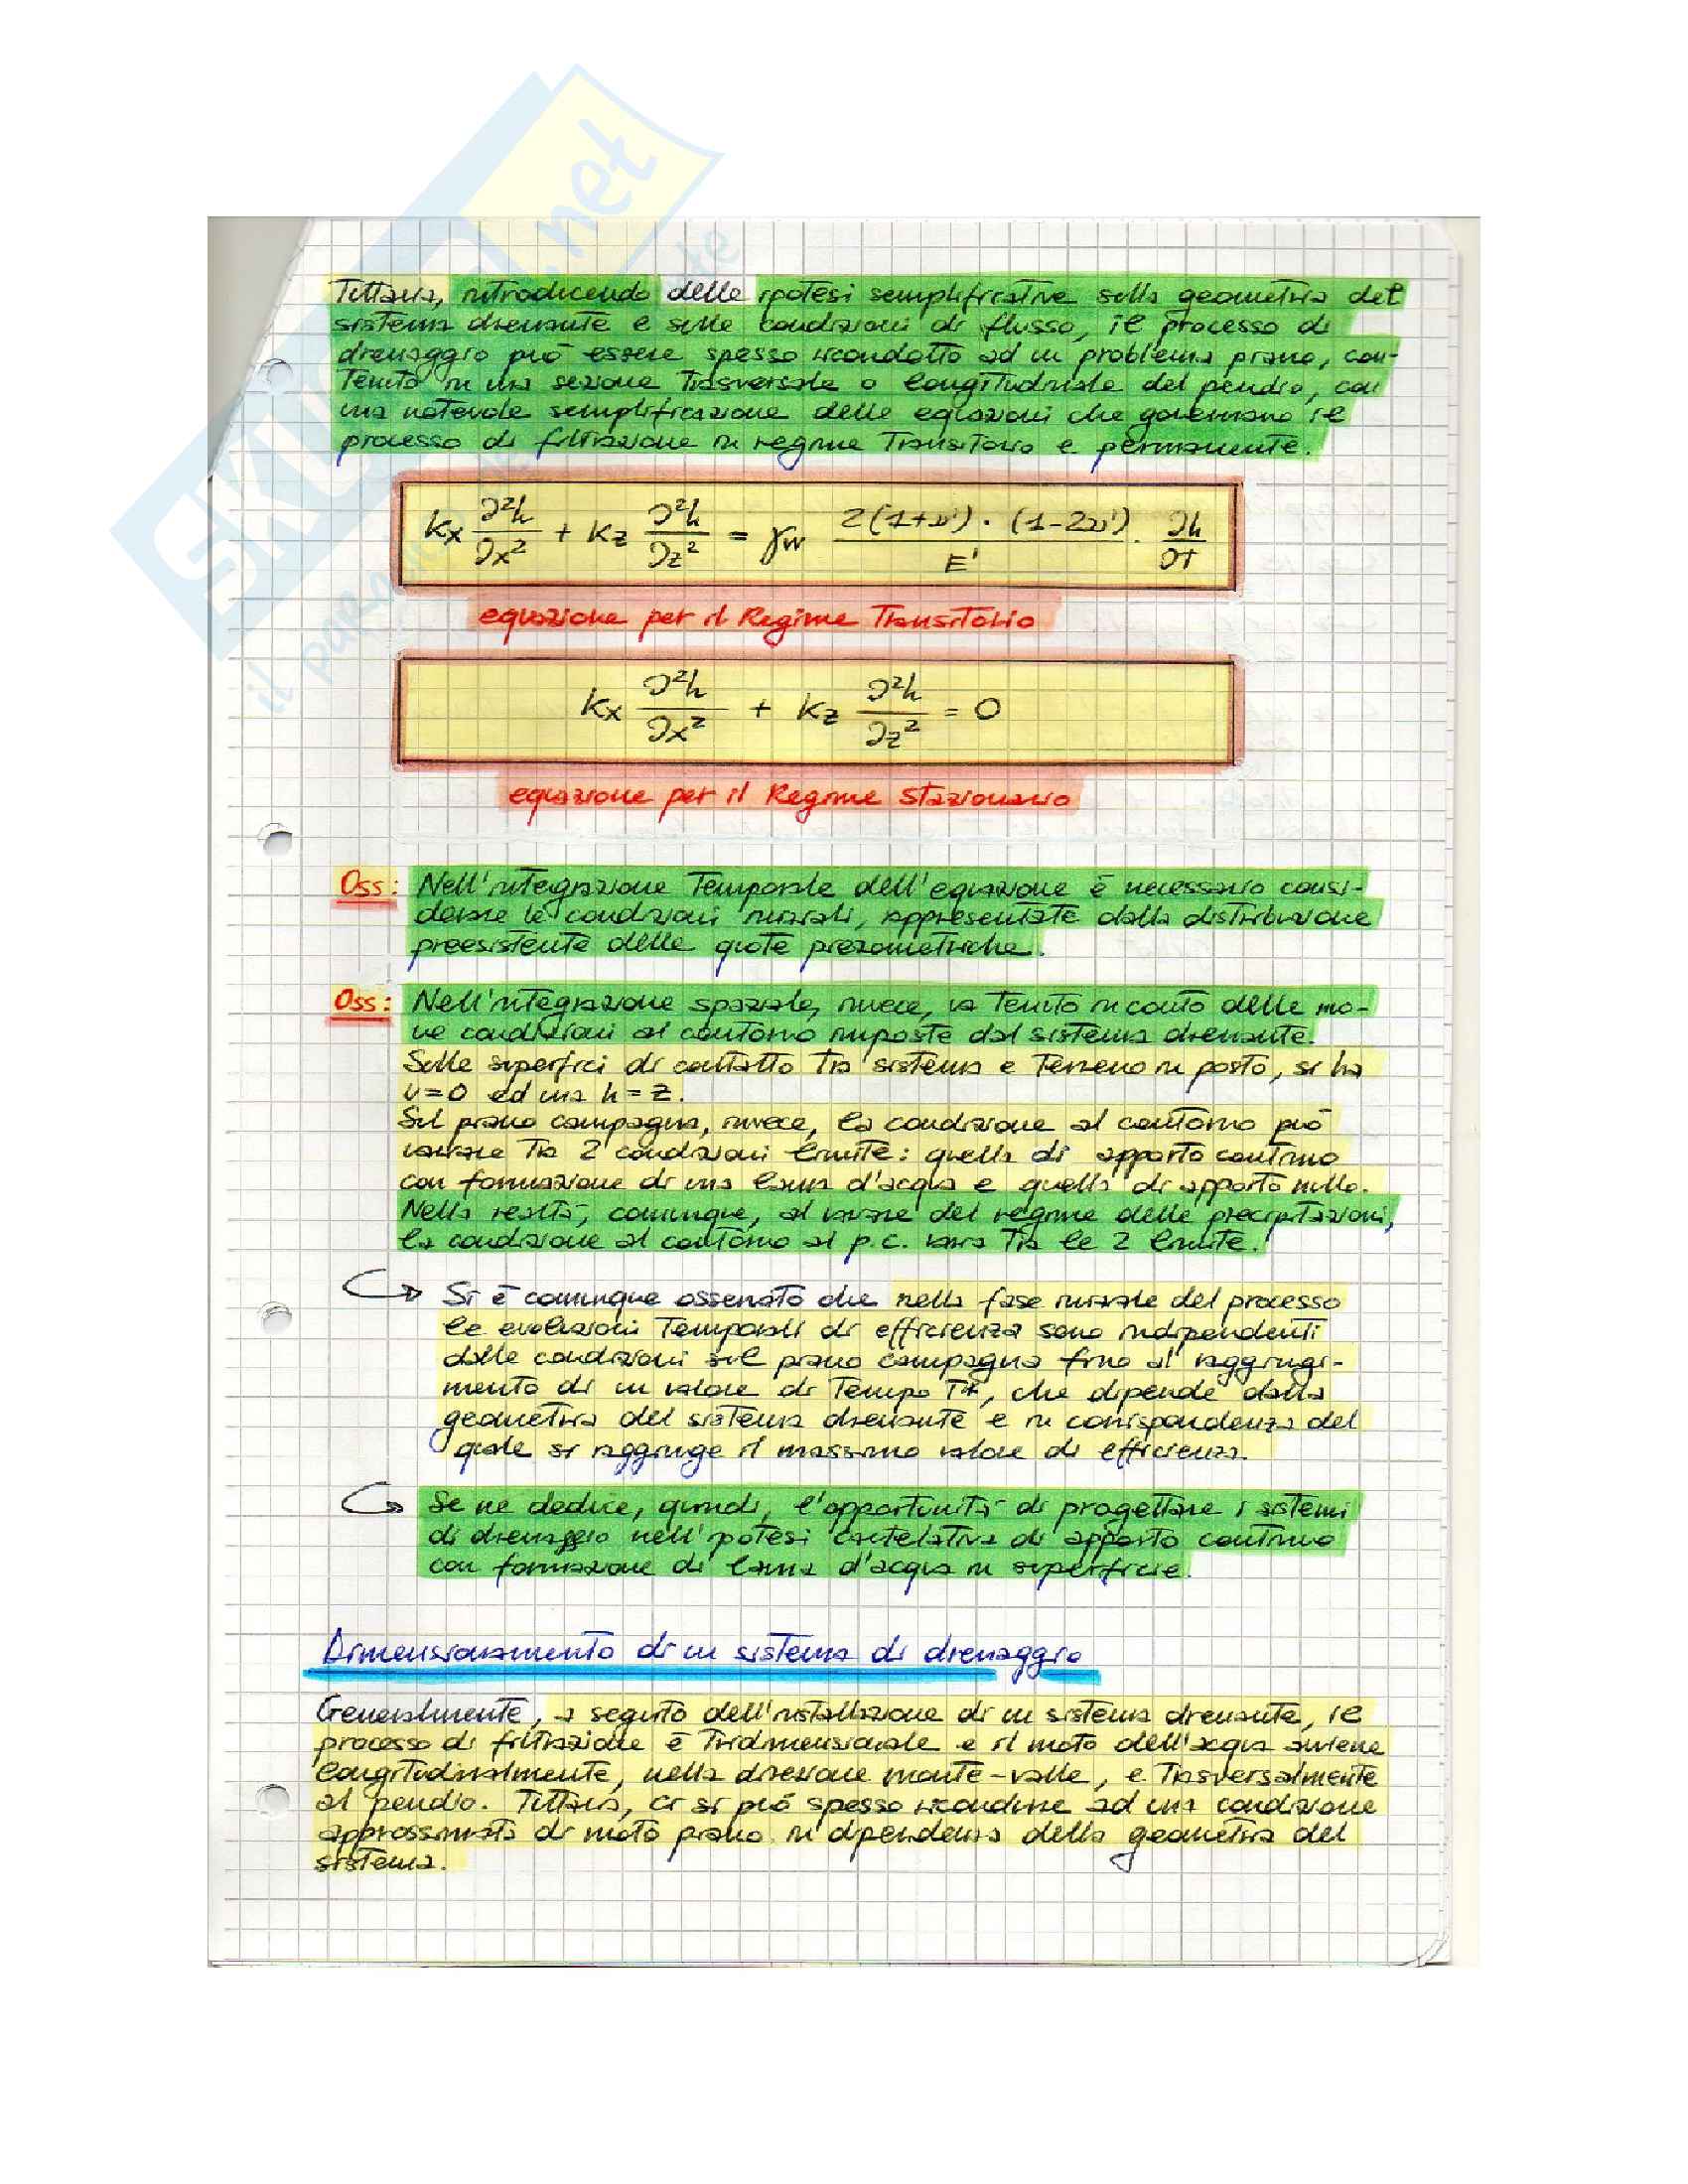 Tuttavia, introducendo delle ipotesi semplificative sulla geometria del
sistema drenante e sulle condizioni di flusso, il processo di
drenaggio può essere spesso ricondotto ad un problema piano, con-
tenuto in una sezione trasversale o longitudinale del pendio, con
una notevole semplificazione delle equazioni che governano il
processo di filtrazione in regime transitorio e permanente.
kx ∂²h/∂x² + kz ∂²h/∂z² = γw 2(1+ν')·(1-2ν')/E' · ∂h/∂t
equazione per il Regime Transitorio
kx ∂²h/∂x² + kz ∂²h/∂z² = 0
equazione per il Regime Stazionario
Oss: Nell'integrazione temporale dell'equazione è necessario consi-
derare le condizioni iniziali, rappresentate dalla distribuzione
preesistente delle quote piezometriche.
Oss: Nell'integrazione spaziale, invece, va tenuto in conto delle nuo-
ve condizioni al contorno imposte dal sistema drenante.
Sulle superfici di contatto tra sistema e terreno in posto, si ha
u=0 ed una h=z.
Sul piano campagna, invece, la condizione al contorno può
variare tra 2 condizioni limite: quella di apporto continuo
con formazione di una lama d'acqua e quella di apporto nullo.
Nella realtà, comunque, al variare del regime delle precipitazioni,
la condizione al contorno al p.c. varia tra le 2 limite.
Si è comunque osservato che nella fase iniziale del processo
le evoluzioni temporali di efficienza sono indipendenti
dalle condizioni sul piano campagna fino al raggiungi-
mento di un valore di tempo T*, che dipende dalla
geometria del sistema drenante e in corrispondenza del
quale si raggiunge il massimo valore di efficienza.
Se ne deduce, quindi, l'opportunità di progettare i sistemi
di drenaggio nell'ipotesi cautelativa di apporto continuo
con formazione di lama d'acqua in superficie.
Dimensionamento di un sistema di drenaggio
Generalmente, a seguito dell'installazione di un sistema drenante, il
processo di filtrazione è tridimensionale e il moto dell'acqua avviene
longitudinalmente, nella direzione monte-valle, e trasversalmente
al pendio. Tuttavia, ci si può spesso ricondurre ad una condizione
approssimata di moto piano in dipendenza della geometria del
sistema.
.net